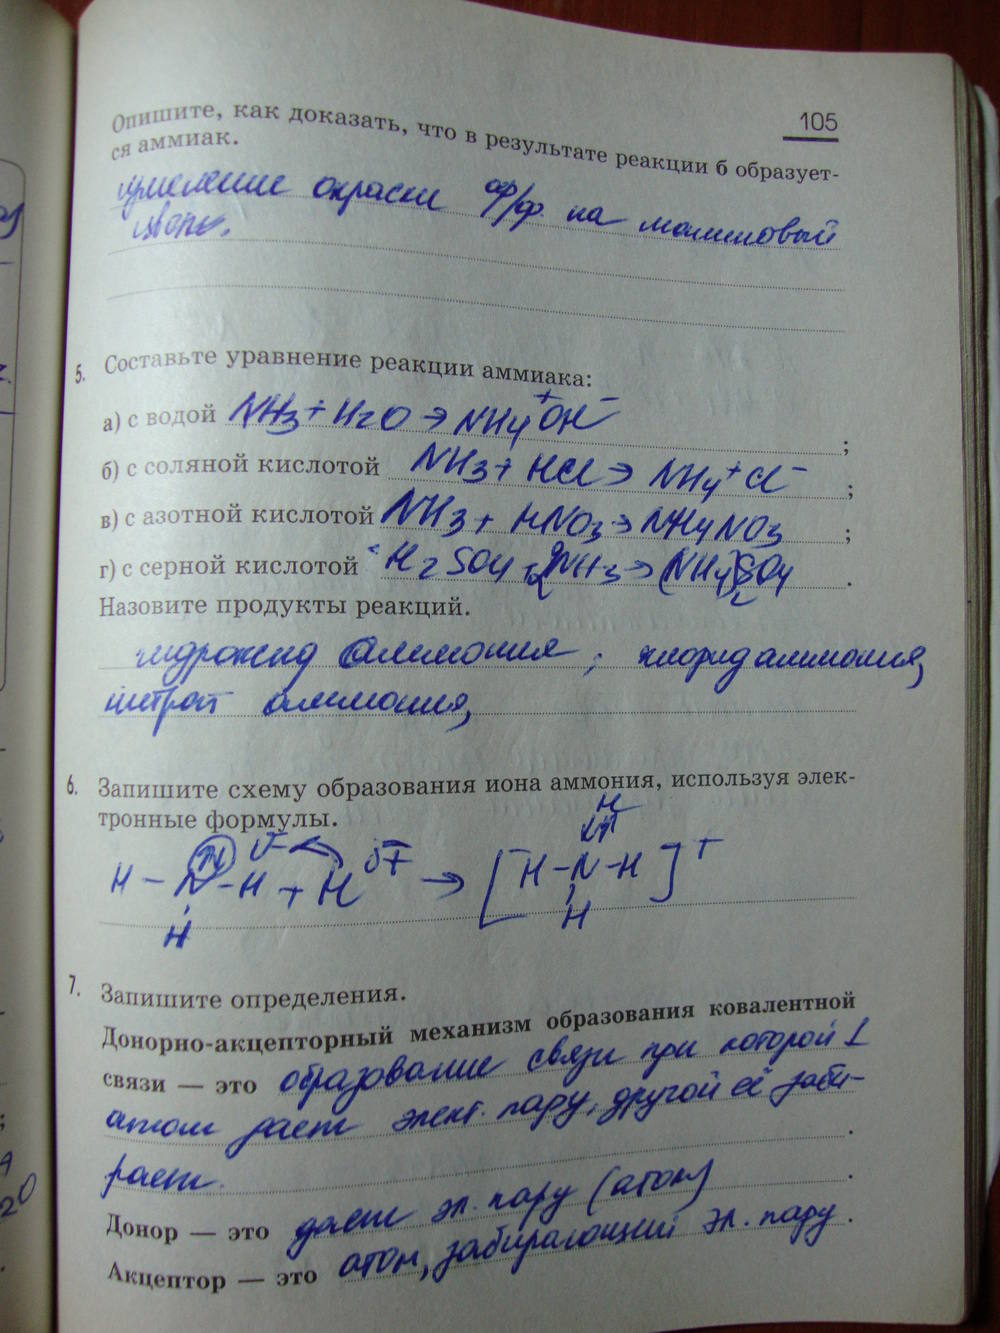 105
Опишите, как доказать, что в результате реакции б образует-
ся аммиак.
окраски ф/ф. на малиновый
5. Составьте уравнение реакции аммиака:
а) с водой NH3 + H2O → NH4+OH− ;
б) с соляной кислотой NH3 + HCl → NH4+Cl− ;
в) с азотной кислотой NH3 + HNO3 → NH4NO3 ;
г) с серной кислотой H2SO4 + 2NH3 → (NH4)2SO4 .
Назовите продукты реакций.
гидроксид аммония, хлорид аммония,
нитрат аммония,
6. Запишите схему образования иона аммония, используя элек-
тронные формулы.
H
H − N − H + H δ+ → [H − N − H]+
H H
7. Запишите определения.
Донорно-акцепторный механизм образования ковалентной
связи — это образование связи при которой 1
атом дает элект. пару, другой её заби-
рает. .
Донор — это дает эл. пару (атом) .
Акцептор — это атом, забирающий эл. пару .